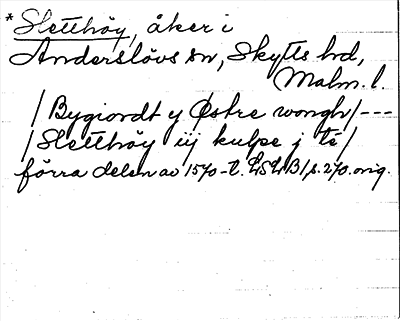 *Sletthöy, åker i
Anderslövs sn, Skytts hd,
Malm. l.
/Bygiordt y Østre wongh/---
/Sletthöy iij kulpe j te/
förra delen av 1570-t. LSLB1, s. 270. orig.